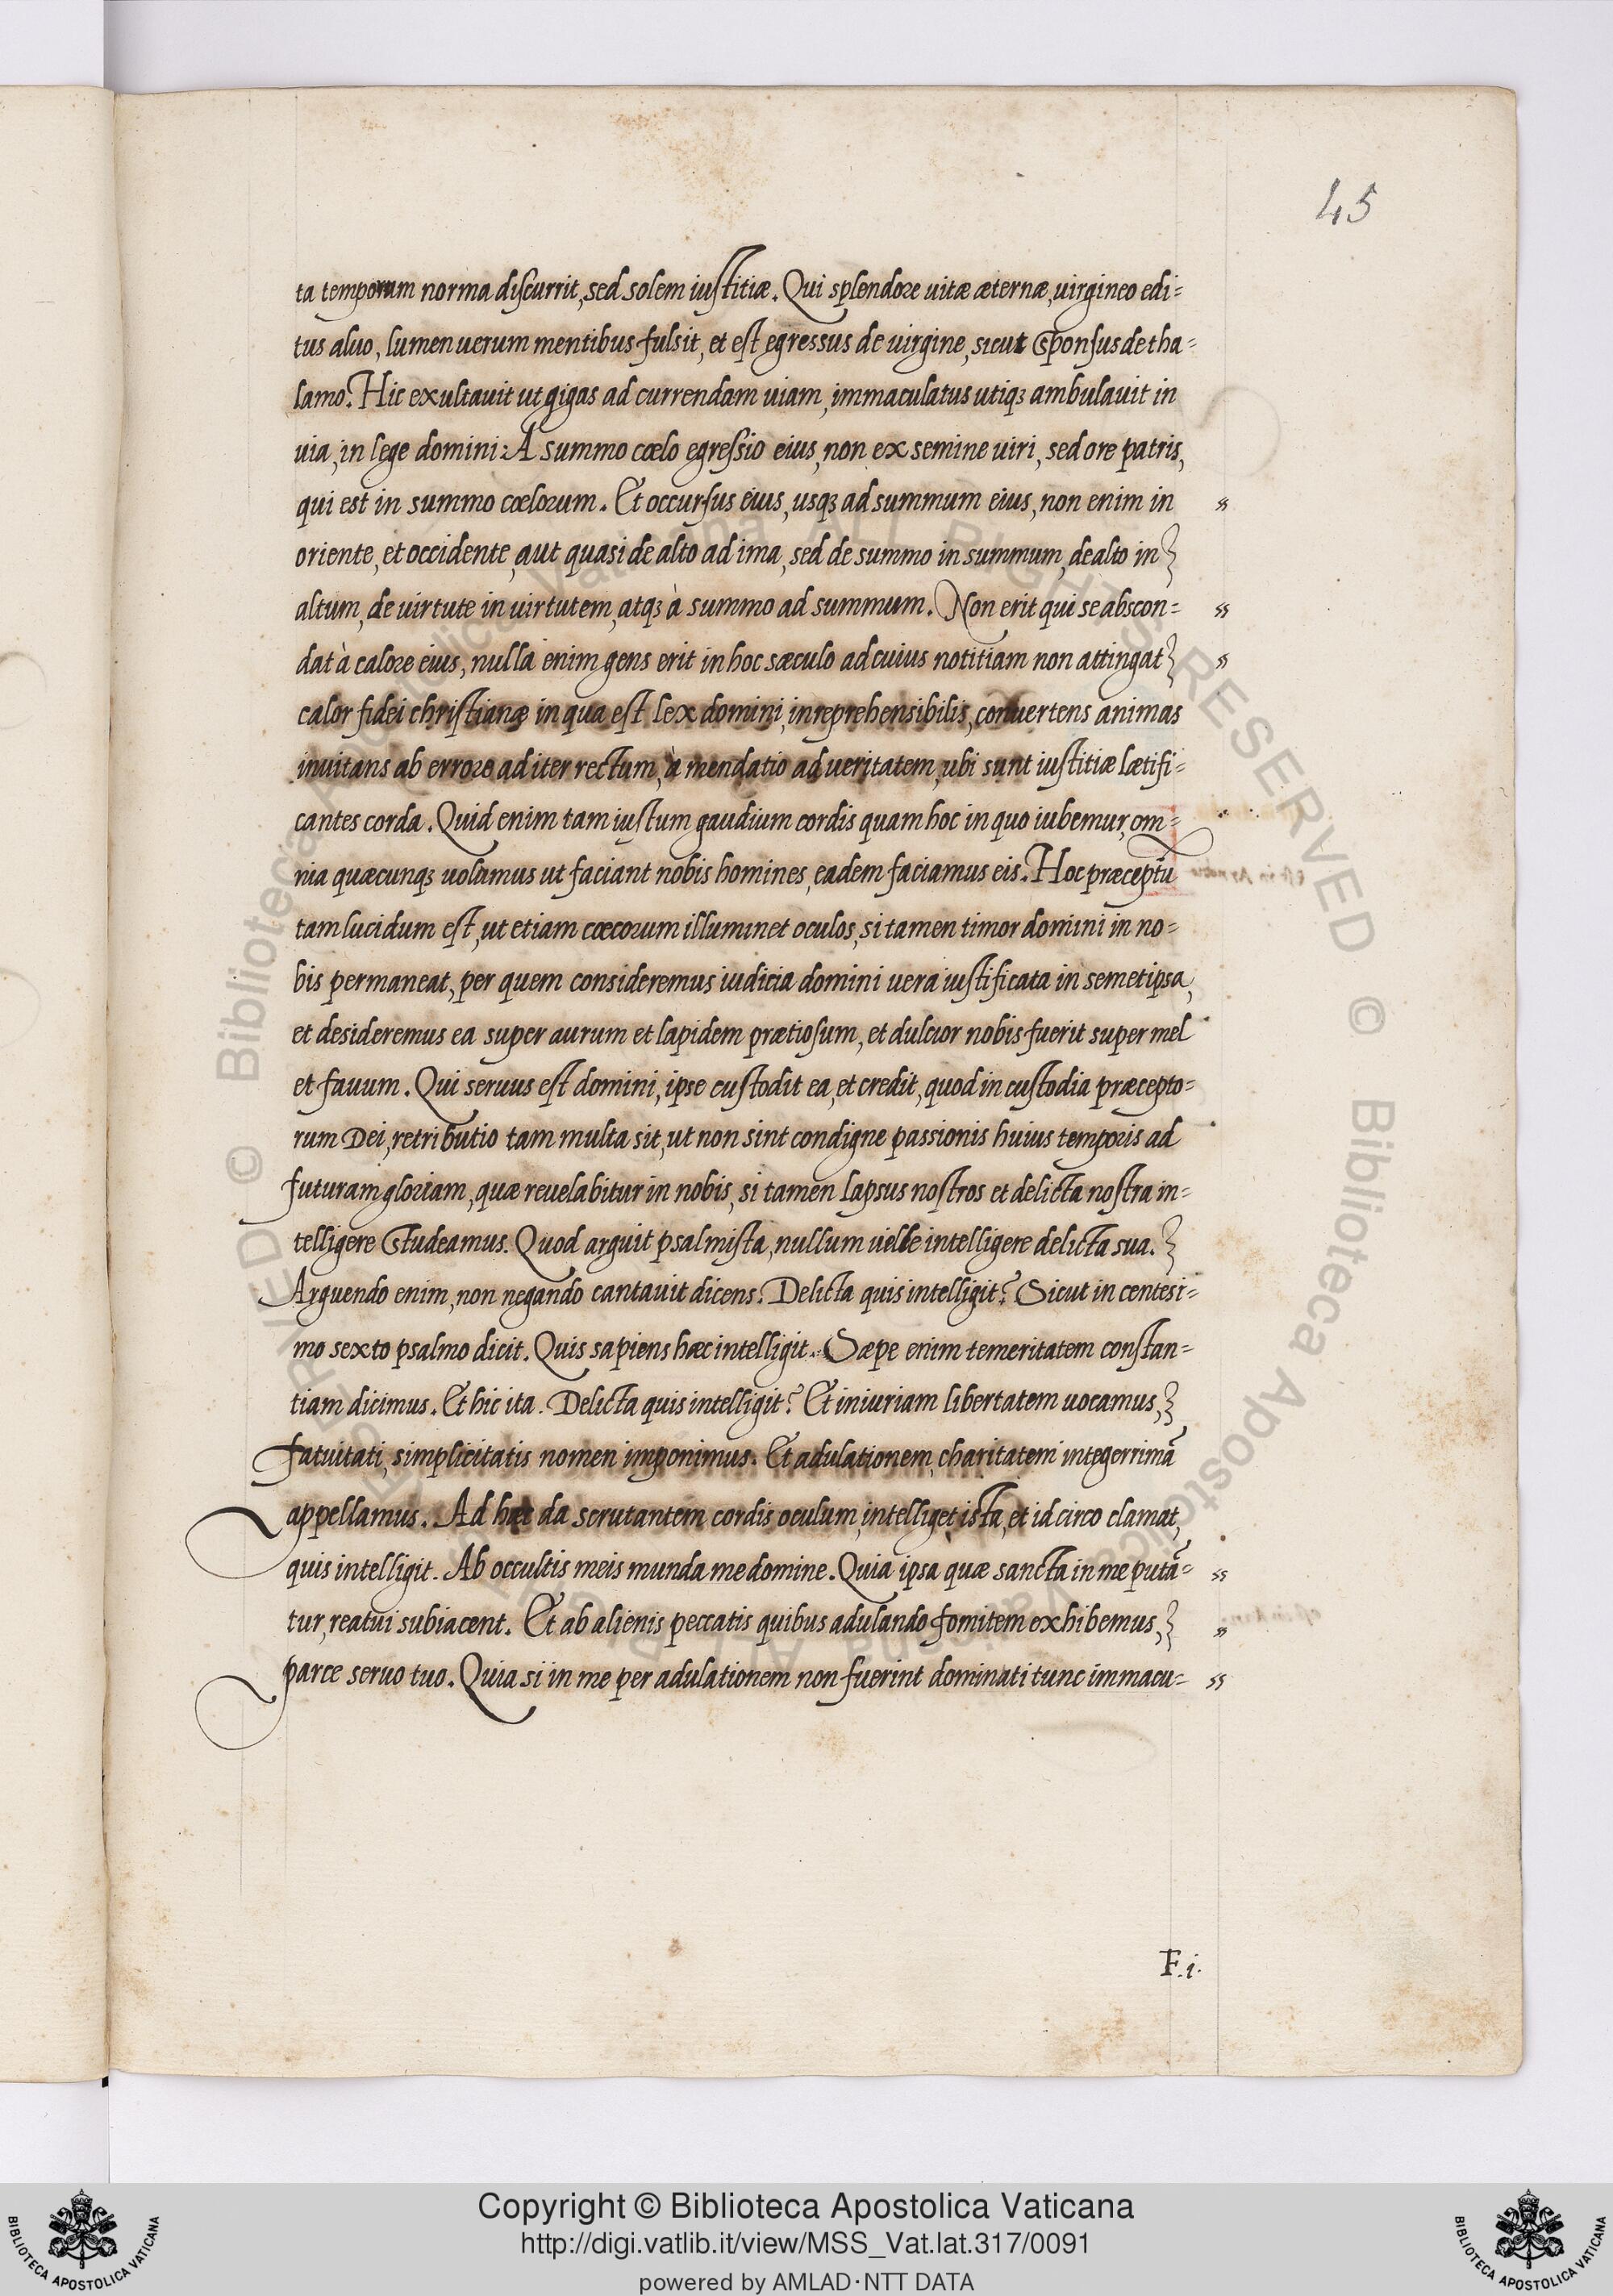 45
ta temporum norma discurrit, sed solem iustitiæ. Qui splendore uitæ æternæ, uirgineo edi=
tus aluo, lumen uerum mentibus fulsit, et est egressus de uirgine, sicut Sponsus de tha=
lamo. Hic exultauit ut gigas ad currendam uiam, immaculatus utiqꝫ ambulauit in
uia, in lege domini: A summo cœlo egressio eius, non ex semine uiri, sed ore patris,
qui est in summo cœlorum. Et occursus eius, usqꝫ ad summum eius, non enim in
oriente, et occidente, aut quasi de alto ad ima, sed de summo in summum, de alto in
altum, de uirtute in uirtutem, atqꝫ à summo ad summum. Non erit qui se abscon=
dat à calore eius, nulla enim gens erit in hoc sæculo ad cuius notitiam non attingat
calor fidei christianæ in qua est lex domini, inreprehensibilis, conuertens animas
inuitans ab errore ad iter rectum, à mendatio ad ueritatem, ubi sunt iustitiæ lætifi=
cantes corda. Quid enim tam iustum gaudium cordis quam hoc in quo iubemur, om=
nia quæcunqꝫ uolumus ut faciant nobis homines, eadem faciamus eis. Hoc præceptū
tam lucidum est, ut etiam cœcorum illuminet oculos, si tamen timor domini in no=
bis permaneat, per quem consideremus iudicia domini uera iustificata in semetipsa,
et desideremus ea super aurum et lapidem prætiosum, et dulcior nobis fuerit super mel
et fauum. Qui seruus est domini, ipse custodit ea, et credit, quod in custodia præcepto=
rum Dei, retributio tam multa sit, ut non sint condigne passionis huius temporis ad
futuram gloriam, quæ reuelabitur in nobis, si tamen lapsus nostros et delicta nostra in=
telligere Studeamus. Quod arguit psalmista, nullum uelle intelligere delicta sua.
Arguendo enim, non negando cantauit dicens. Delicta quis intelligit? Sicut in centesi=
mo sexto psalmo dicit. Quis sapiens hæc intelligit. Sæpe enim temeritatem constan=
tiam dicimus. Et hic ita. Delicta quis intelligit? Et iniuriam libertatem uocamus,
fatuitati, simplicitatis nomen imponimus. Et adulationem, charitatem integerrimā
appellamus. Ad hæc da scrutantem cordis oculum, intelliget ista, et idcirco clamat,
quis intelligit. Ab occultis meis munda me domine. Quia ipsa quæ sancta in me putā=
tur, reatui subiacent. Et ab alienis peccatis quibus adulando fomitem exhibemus,
parce seruo tuo. Quia si in me per adulationem non fuerint dominati tunc immacu=
F.i.
Copyright © Biblioteca Apostolica Vaticana
http://digi.vatlib.it/view/MSS_Vat.lat.317/0091
powered by AMLAD·NTT DATA
BIBLIOTECA APOSTOLICA VATICANA
BIBLIOTECA APOSTOLICA VATICANA